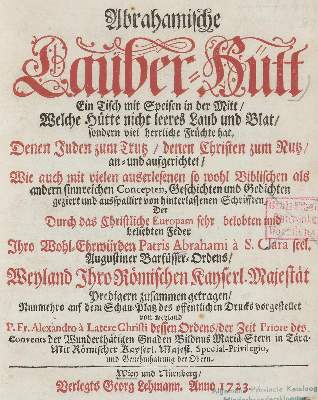 Abrahamische
Lauber-Hütt
Ein Tisch mit Speisen in der Mitt/
Welche Hütte nicht leeres Laub und Blat/
sondern viel herrliche Früchte hat,
Denen Juden zum Trutz/ denen Christen zum Nutz/
an- und aufgerichtet/
Wie auch mit vielen auserlesenen so wohl Biblischen als
andern sinnreichen Concepten, Geschichten und Gedichten
geziert und ausspalliert von hinterlassenen Schrifften
Der
Durch das Christliche Europam sehr belobten und
beliebten Feder
Ihro Wohl-Ehrwürden Patris Abrahami à S. Clara seel.
Augustiner Barfüsser-Ordens/
Weyland Ihro Römischen Kayserl. Majestät
Predigern zusammen getragen/
Nunmehro auf dem Schau-Platz des öffentlichen Drucks vorgestellet
von Weyland
P. Fr. Alexandro à Latere Christi dessen Ordens/ der Zeit Priore des
Convents der Wunderthätigen Gnaden Bildnus Mariä Stern in Tära.
Mit Römischer Kayserl. Majest. Special-Privilegio,
und Genehmhaltung der Obern.
Wien und Nürnberg/
Verlegts Georg Lehmann. Anno 1723.